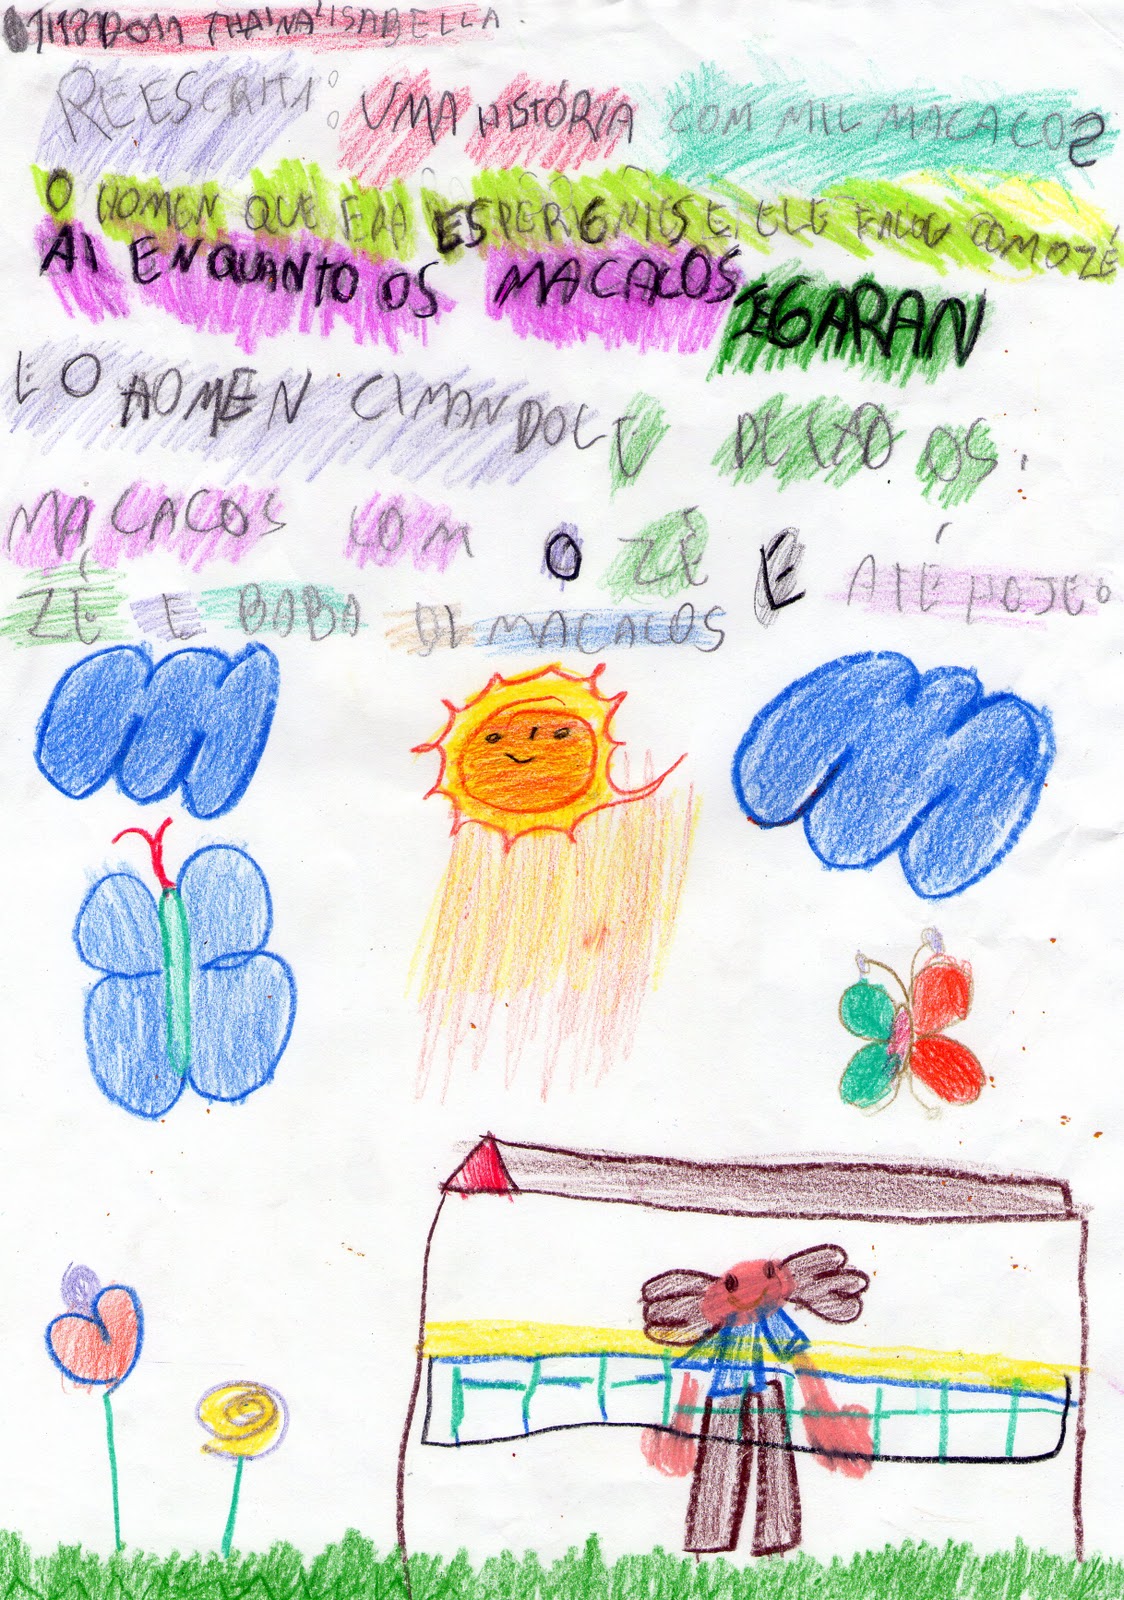 THAINÁ ISABELLA.
REESCRITA: UMA HISTÓRIA COM MIL MACACOS
O HOMEN QUE ERA ELE FALOU COM O ZÉ
AI ENQUANTO OS MACACOS JEGARAN
E O HOMEN DEIXO OS
MACACOS COM O ZÉ E ATÉ HOJE O
ZÉ E BABA DI MACACOS